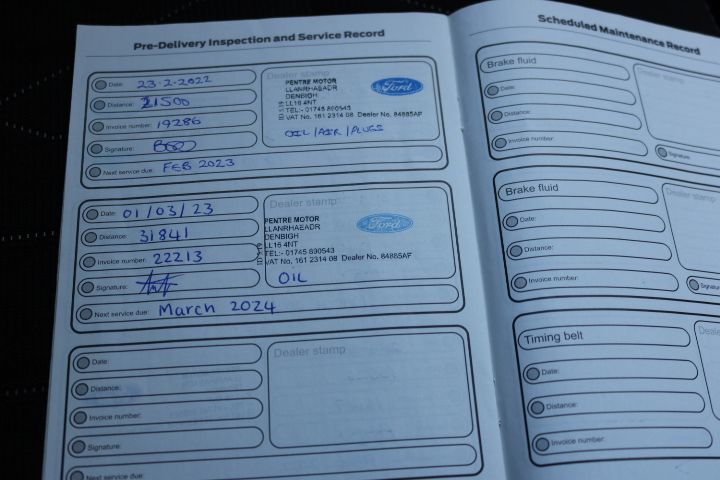 Pre-Delivery Inspection and Service Record
Date: 23-2-2022
Distance: 21500
Invoice number: 19286
Signature:
Next service due: FEB 2023
Dealer stamp
PENTRE MOTOR
LLANRHAEADR
DENBIGH
LL16 4NT
TEL:- 01745 890543
VAT No. 161 2314 08 Dealer No. 84885AF
Ford
OIL/AIR/PLUGS
Date: 01/03/23
Distance: 31841
Invoice number: 22213
Signature:
Next service due: March 2024
Dealer stamp
PENTRE MOTOR
LLANRHAEADR
DENBIGH
LL16 4NT
TEL:- 01745 890543
VAT No. 161 2314 08 Dealer No. 84885AF
Ford
OIL
Date:
Distance:
Invoice number:
Signature:
Next service due:
Dealer stamp
Scheduled Maintenance Record
Brake fluid
Date:
Distance:
Invoice number:
Dealer stamp
Signature:
Brake fluid
Date:
Distance:
Invoice number:
Dealer stamp
Timing belt
Date:
Distance:
Invoice number: